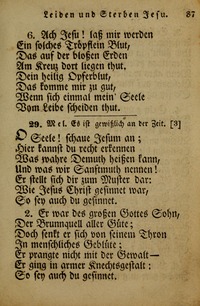 Leiden und Sterben Jesu. 37
6. Ach Jesu! laß mir werden
Ein solches Tröpflein Blut,
Das auf der bloßen Erden
Am Kreuz dort liegen thut.
Dein heilig Opferblut,
Das komme mir zu gut,
Wenn sich einmal mein' Seele
Vom Leibe scheiden thut.
29. Mel. Es ist gewißlich an der Zeit. [3]
O Seele! schaue Jesum an;
Hier kannst du recht erkennen
Was wahre Demuth heißen kann,
Und was wir Sanftmuth nennen!
Er stellt sich dir zum Muster dar:
Wie Jesus Christ gesinnet war,
So sey auch du gesinnet.
2. Er war des großen Gottes Sohn,
Der Brunnquell aller Güte;
Doch senkt er sich von seinem Thron
In menschliches Geblüte;
Er prangte nicht mit der Gewalt—
Er ging in armer Knechtsgestalt;
So sey auch du gesinnet.